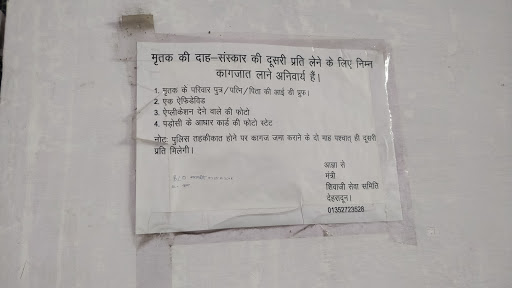 मृतक की दाह-संस्कार की दूसरी प्रति लेने के लिए निम्न
कागजात लाने अनिवार्य हैं।
1. मृतक के परिवार पुत्र/पत्नि/पिता की आई डी प्रुफ।
2. एक ऐफिडेविड
3. ऐप्लीकेशन देने वाले की फोटो
4. पड़ोसी के आधार कार्ड की फोटो स्टेट
नोटः पुलिस तहकीकात होने पर कागज जमा कराने के दो माह पश्चात् ही दूसरी
प्रति मिलेगी।
आज्ञा से
मंत्री
शिवाजी सेवा समिति
देहरादून।
01352723528